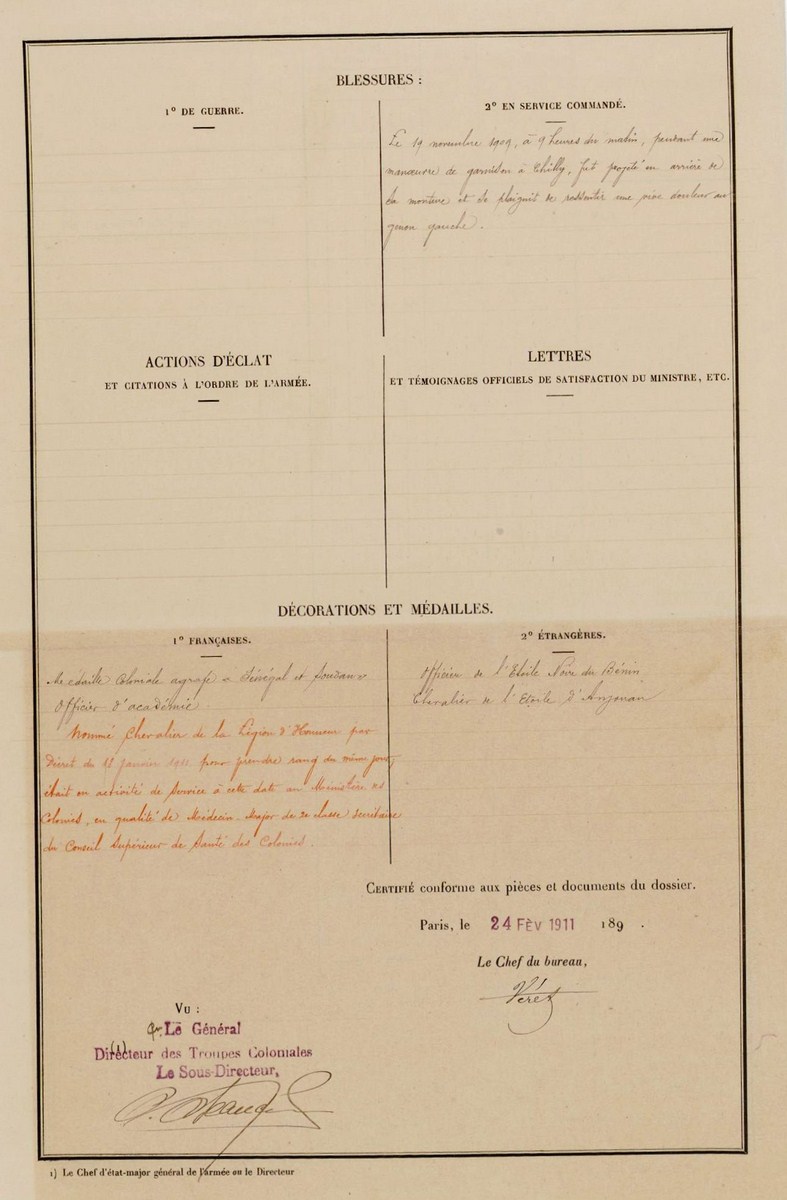 BLESSURES :
1º DE GUERRE.
2º EN SERVICE COMMANDÉ.
Le 19 novembre 1909, à 9 heures du matin, pendant une
manœuvre de garnison à Chilly, fut projeté en arrière de
sa monture et se plaignit de ressentir une vive douleur au
genou gauche.
ACTIONS D'ÉCLAT
ET CITATIONS À L'ORDRE DE L'ARMÉE.
LETTRES
ET TÉMOIGNAGES OFFICIELS DE SATISFACTION DU MINISTRE, ETC.
DÉCORATIONS ET MÉDAILLES.
1º FRANÇAISES.
Médaille Coloniale agrafe « Sénégal et Soudan »
Officier d'académie
Nommé Chevalier de la Légion d'Honneur par
Décret du 18 janvier 1911 pour prendre rang du même jour,
était en activité de Service à cette date au Ministère des
Colonies, en qualité de Médecin-Major de 2e classe secrétaire
du Conseil Supérieur de Santé des Colonies.
2º ÉTRANGÈRES.
Officier de l'Etoile Noire du Bénin
Chevalier de l'Etoile d'Anjouan
CERTIFIÉ conforme aux pièces et documents du dossier.
Paris, le 24 FÈV 1911 189 .
Le Chef du bureau,
Vu :
Le Général
Directeur des Troupes Coloniales
Le Sous-Directeur,
1) Le Chef d'état-major général de l'armée ou le Directeur